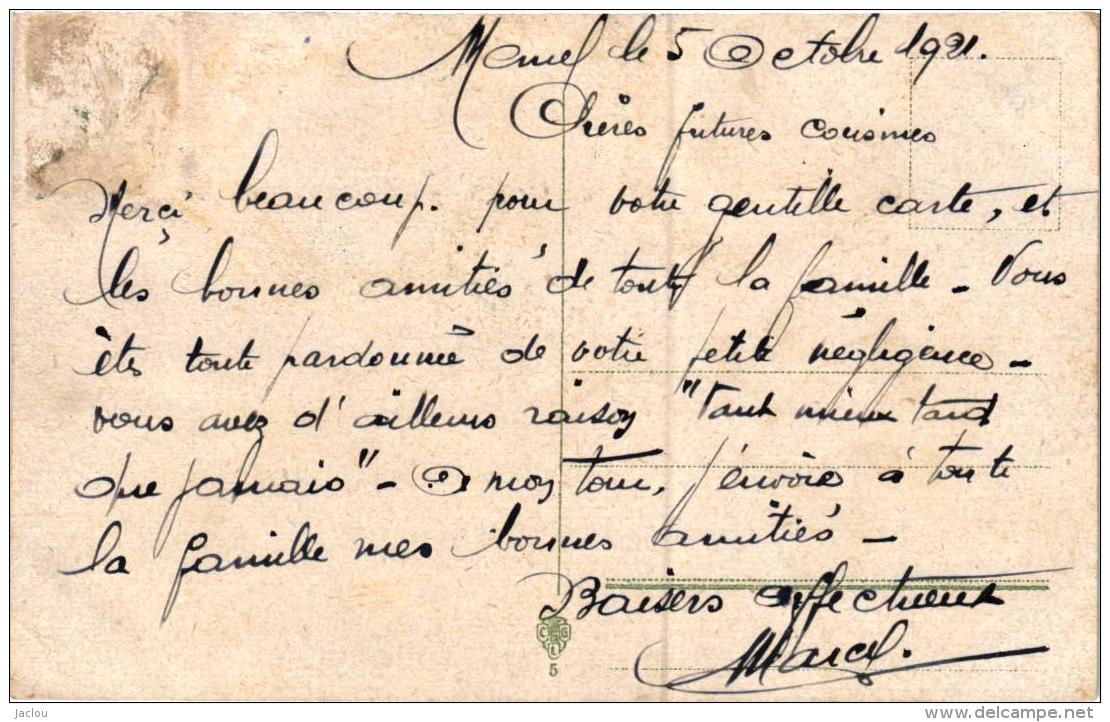 Memel le 5 Octobre 1921.
Chères futures cousines
Merçi beaucoup. pour votre gentille carte, et
les bonnes amitiés de toute la famille - Vous
êtes toute pardonnée de votre petite négligence -
vous avez d'ailleurs raison "Tant mieux tard
que jamais" - A mon tour, j'envoie à toute
la famille mes bonnes amitiés -
Baisers affectueux
Marcel.
C G
L
5
Jaclou
www.delcampe.net